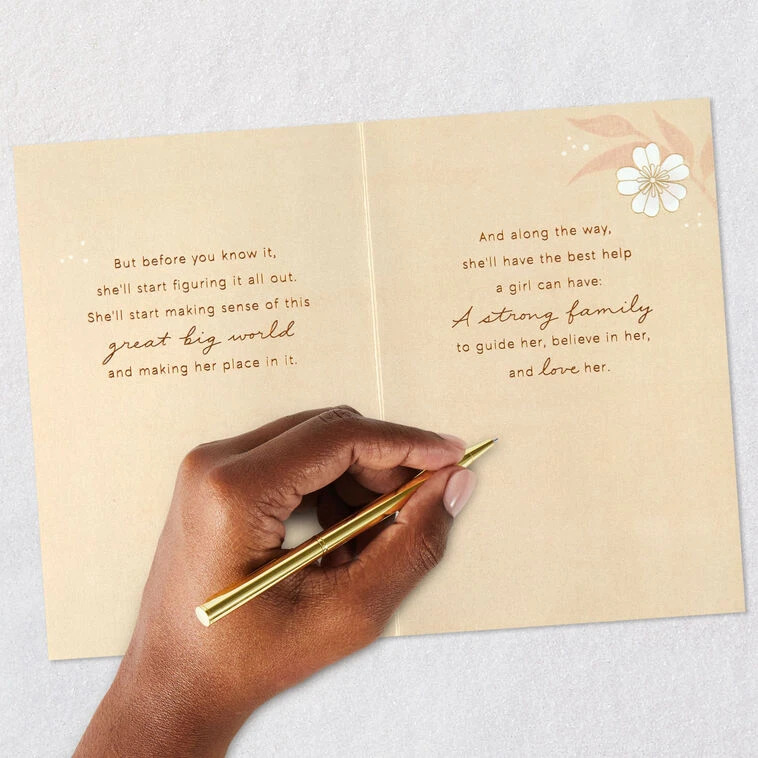 But before you know it,
she'll start figuring it all out.
She'll start making sense of this
great big world
and making her place in it.
And along the way,
she'll have the best help
a girl can have:
A strong family
to guide her, believe in her,
and love her.